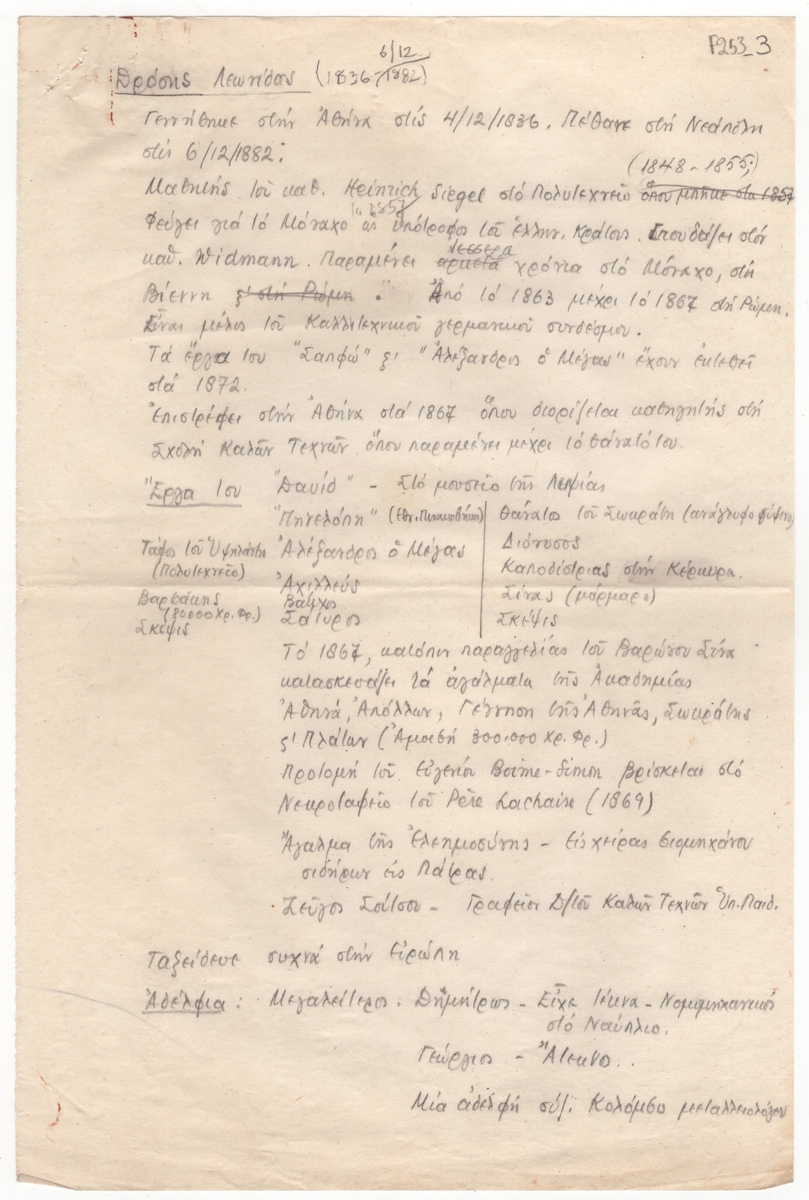 Γ253_3
6/12
Δρόσης Λεωνίδας (1836-1882)
Γεννήθηκε στήν Ἀθήνα στίς 4/12/1836. Πέθανε στή Νεάπολη
στίς 6/12/1882.
(1848-1855;)
Μαθητής τοῦ καθ. Heinrich Siegel στό Πολυτεχνεῖο ὅπου μπῆκε στα 1857
Φεύγει γιά τό Μόναχο ὡς ὑπότροφος τοῦ ἑλλην. Κράτους. Σπουδάζει στόν
τέσσερα
καθ. Widmann. Παραμένει ἀρκετά χρόνια στό Μόναχο, στή
Βιέννη ϛ' στή Ρώμη. Ἀπό τό 1863 μέχρι τό 1867 στή Ρώμη.
Εἶναι μέλος τοῦ Καλλιτεχνικοῦ γερμανικοῦ συνδέσμου.
Τά ἔργα του "Σαπφώ" ϛ' "Ἀλέξανδρος ὁ Μέγας" ἔχουν ἐκτεθεῖ
στά 1872.
Ἐπιστρέφει στήν Ἀθήνα στά 1867 ὅπου διορίζεται καθηγητής στή
Σχολή Καλῶν Τεχνῶν ὅπου παραμένει μέχρι τό θάνατό του.
Ἔργα του "David" - Στό μουσεῖο τῆς Λειψίας
"Πηνελόπη" (Ἐθν. Πινακοθήκη) Θάνατος τοῦ Σωκράτη (ἀνάγλυφο
Τάφος τοῦ Ὑψηλάντη Ἀλέξανδρος ὁ Μέγας Διόνυσος
(Πολυτεχνεῖο) Ἀχιλλεύς Καποδίστριας στήν Κέρκυρα.
Βαρβάκης Βάκχος Σίνας (μάρμαρο)
(80000 χρ. Φρ.) Σάτυρος Σκέψις
Σκέψις
Τό 1867, κατόπιν παραγγελίας τοῦ Βαρώνου Σίνα
κατασκευάζει τά ἀγάλματα τῆς Ἀκαδημίας
Ἀθηνᾶ, Ἀπόλλων, Γέννηση τῆς Ἀθηνᾶς, Σωκράτης
ϛ' Πλάτων (Ἀμοιβή 300.000 χρ. Φρ.)
Προτομή τοῦ Εὐγενίου βρίσκεται στό
Νεκροταφεῖο τοῦ Père Lachaise (1869)
Ἄγαλμα τῆς Ἐλεημοσύνης - Εἰς χεῖρας βιομηχάνου
σιδήρων εἰς Πάτρας.
Ζεῦγος Σούτσου - Γραφεῖον Δ/τοῦ Καλῶν Τεχνῶν Ὑπ. Παιδ.
Ταξείδευε συχνά στήν Εὐρώπη
Ἀδέλφια: Μεγαλείτερος: Δημήτριος - Εἶχε τέκνα - Νομομηχανικός
στό Ναύπλιο.
Γεώργιος - Ἄτεκνος.
Μία ἀδελφή σύζ. Κολόμβο μεταλλειολόγου